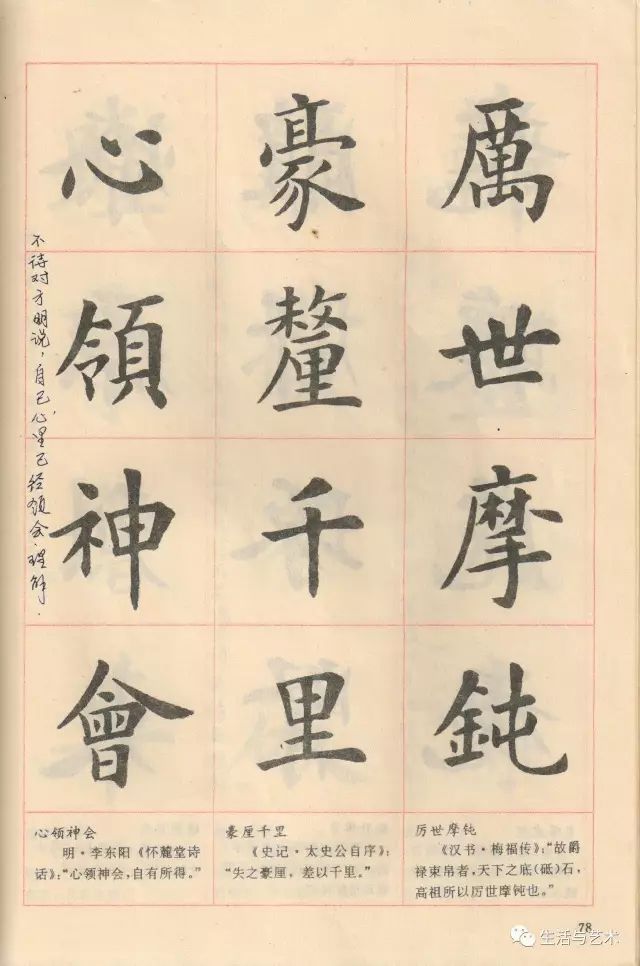 厲世摩鈍
豪釐千里
心領神會
不待对方明说，自己心里已经领会、理解．
厉世摩钝
《汉书·梅福传》：“故爵
禄束帛者，天下之底（砥）石，
高祖所以厉世摩钝也。”
豪厘千里
《史记·太史公自序》：
“失之豪厘，差以千里。”
心领神会
明·李东阳《怀麓堂诗
话》：“心领神会，自有所得。”
78
生活与艺术